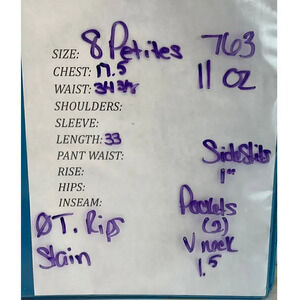 SIZE: 8 Petites 763
CHEST: 17.5 11 oz
WAIST: 34 3/8
SHOULDERS:
SLEEVE:
LENGTH: 33
PANT WAIST: Side Slits
RISE: 1"
HIPS:
INSEAM: Pockets
ØT. Rips (2)
Stain V neck
1.5